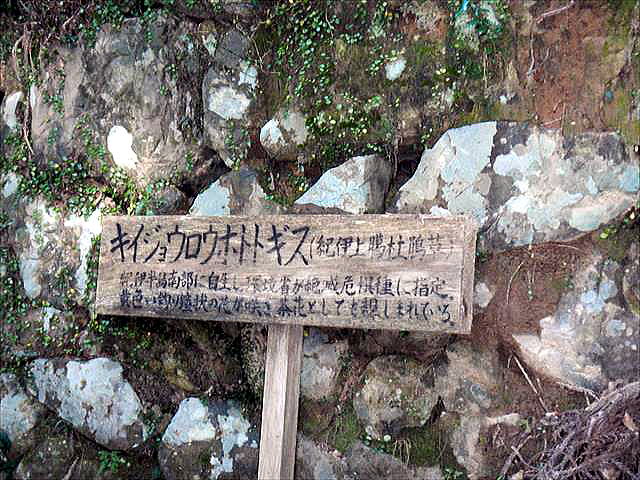 キイジョウロウホトトギス(紀伊上臈杜鵑草)
紀伊半島南部に自生し環境省が絶滅危惧種に指定。
黄色い釣り鐘状の花が咲き茶花としても親しまれている。